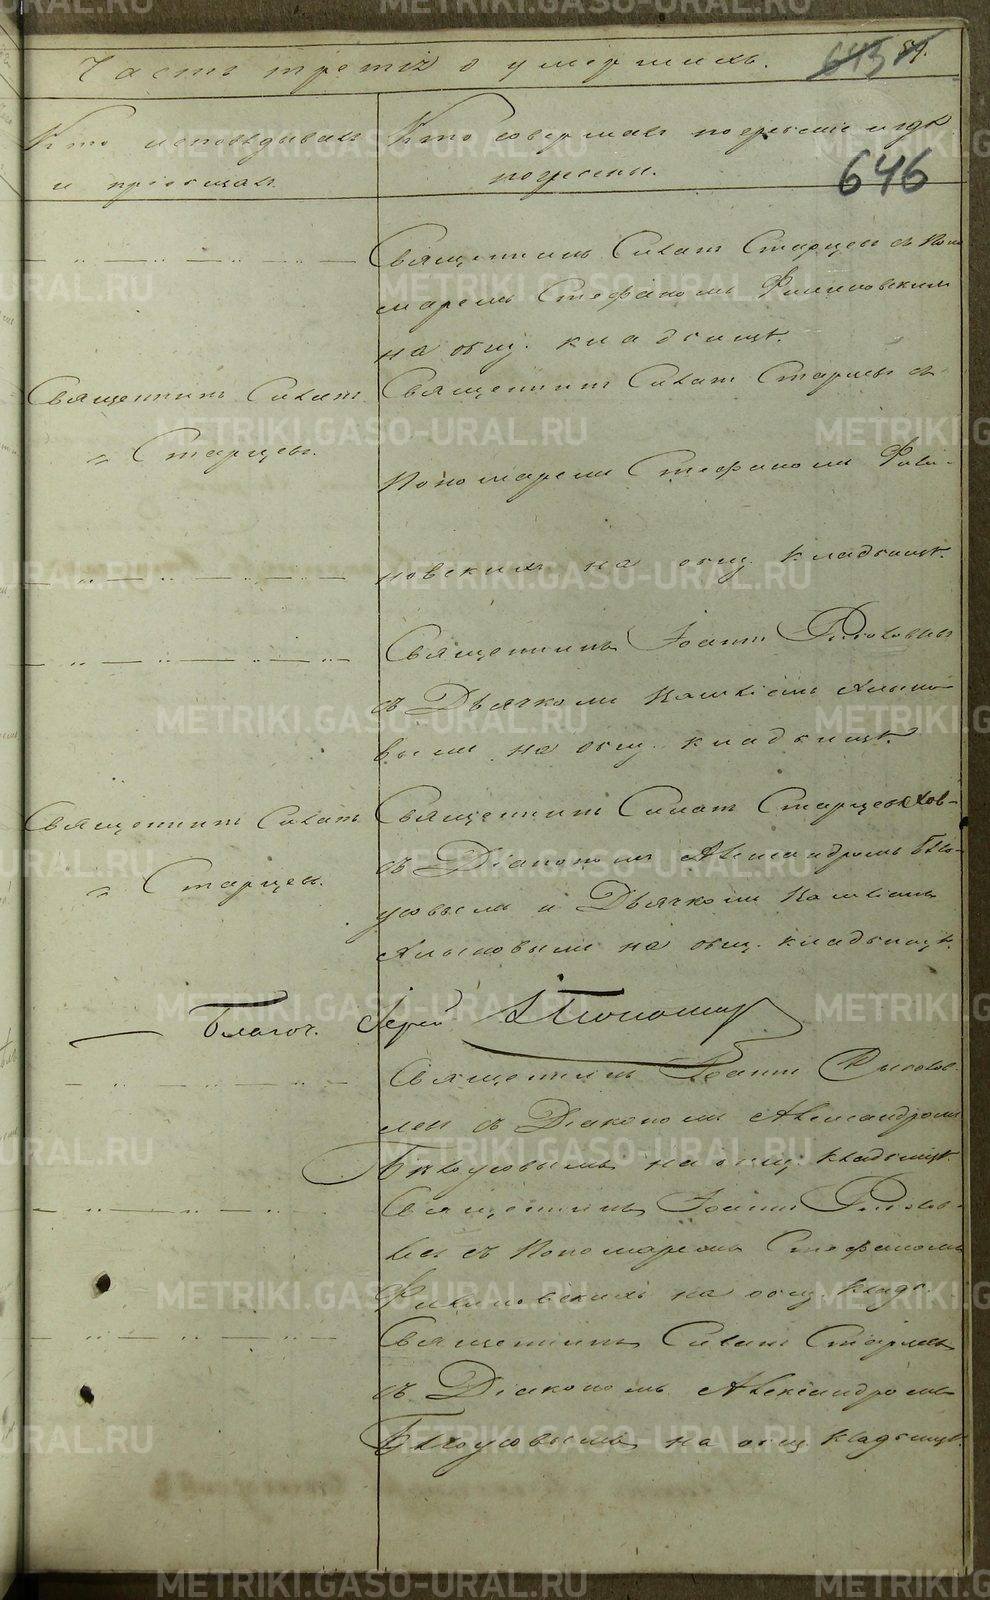 Часть третія о умершихъ.
643 87.
646
Кто исповѣдывалъ
и пріобщалъ
Кто совершалъ погребеніе и гдѣ
погребены.
Священникъ Силатъ Старцевъ съ Поно
маремъ Стефаномъ Филиповскимъ
на общ. кладбищѣ.
Священникъ Силатъ
Старцевъ.
Священникъ Силатъ Старцевъ съ
Пономаремъ Стефаномъ Фили-
повскимъ на общ. кладбищѣ.
Священникъ Іоаннъ
съ Дьячкомъ
на общ. кладбищѣ.
Священникъ Силатъ
Старцевъ.
Священникъ Силатъ Старцевъ
съ Діакономъ Александромъ Бѣло-
усовымъ и Дьячкомъ
на общ. кладбищѣ.
Благоч. Іерей
Священникъ Іоаннъ
съ Діакономъ Александромъ
Бѣлоусовымъ на общ. кладбищѣ.
Священникъ Іоаннъ
съ Пономаремъ Стефаномъ
Филиповскимъ на общ. кладб.
Священникъ Силатъ Старцевъ
съ Діакономъ Александромъ
Бѣлоусовымъ на общ. кладбищѣ.
METRIKI.GASO-URAL.RU